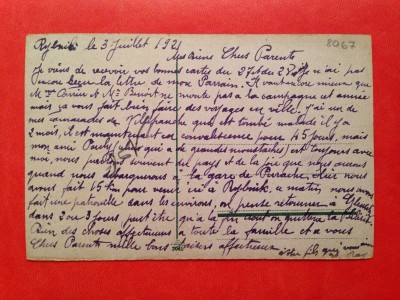 Rybnik le 3 Juillet 1921
8067
Mes Biens Chers Parents
Je viens de recevoir vos bonnes cartes du 27 et du 28 je n'ai pas
encore reçu la lettre de mon Parrain. Il vaut mieux que
Mr et Mr Benoit ne monte pas à la campagne cet année
mais ça vous fait bien faire des voyages en ville, j'ai un de
mes camarades du Téléphone qui est tombé malade il y a
2 mois, il est maintenant en convalescence pour 45 jours, mais
mon ami (qui a de grandes moustaches) est toujours avec
moi, nous parlons souvent du pays et de la joie que nous aurons
quand nous débarquerons à la gare de Perrache, Hier nous
avons fait 15 km pour venir ici à Rybnik, ce matin, nous avons
fait une patrouille dans les environs, on pense retourner à
dans 2 ou 3 jours peut être qu'à la nous on quittera la Silésie.
Rien des choses affectueuses à toute la famille et a vous
Chers Parents mille bons baisers affectueux
votre fils qui vous aime